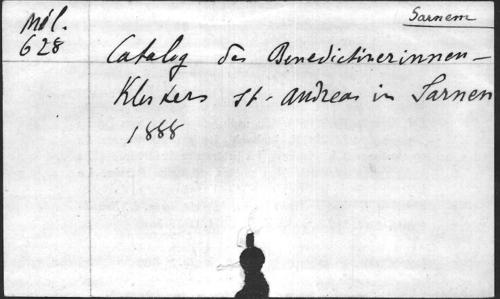 Mél.
628
Sarnem
Catalog des Benedictinerinnen-
Klosters St. Andreas in Sarnen
1888